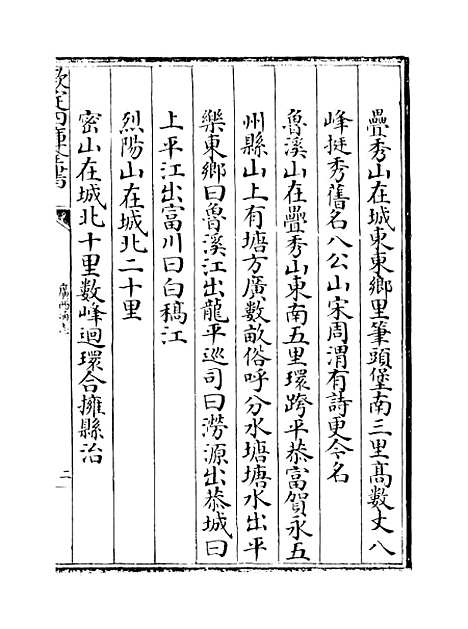 疊秀山在城東東鄉里筆頭堡南三里髙數丈八
峰挺秀舊名八公山宋周渭有詩更今名
魯溪山在疊秀山東南五里環跨平恭富賀永五
州縣山上有塘方廣數畝俗呼分水塘塘水出平
樂東鄉曰魯溪江出龍平巡司曰澇源出恭城曰
上平江出富川曰白稿江
烈陽山在城北二十里
密山在城北十里數峰迴環合擁縣治
欽定四庫全書
廣西通志